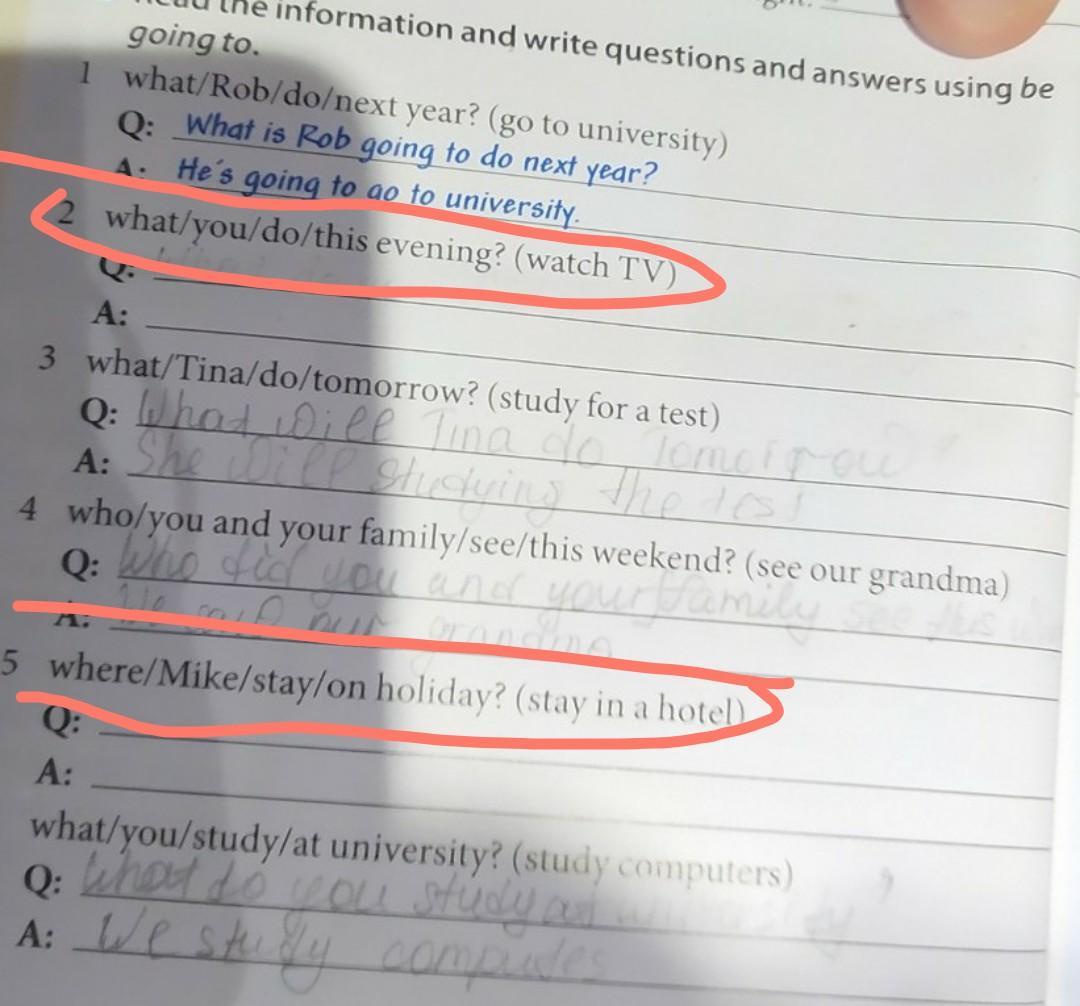 the information and write questions and answers using be
going to.
1 what/Rob/do/next year? (go to university)
Q: What is Rob going to do next year?
A: He's going to go to university.
2 what/you/do/this evening? (watch TV)
Q:
A:
3 what/Tina/do/tomorrow? (study for a test)
Q: What will Tina do Tomorrow
A: She will studying the test
4 who/you and your family/see/this weekend? (see our grandma)
Q: Who did you and your family see this
A: We our grandma
5 where/Mike/stay/on holiday? (stay in a hotel)
Q:
A:
what/you/study/at university? (study computers)
Q: What do you study at university
A: We study computes